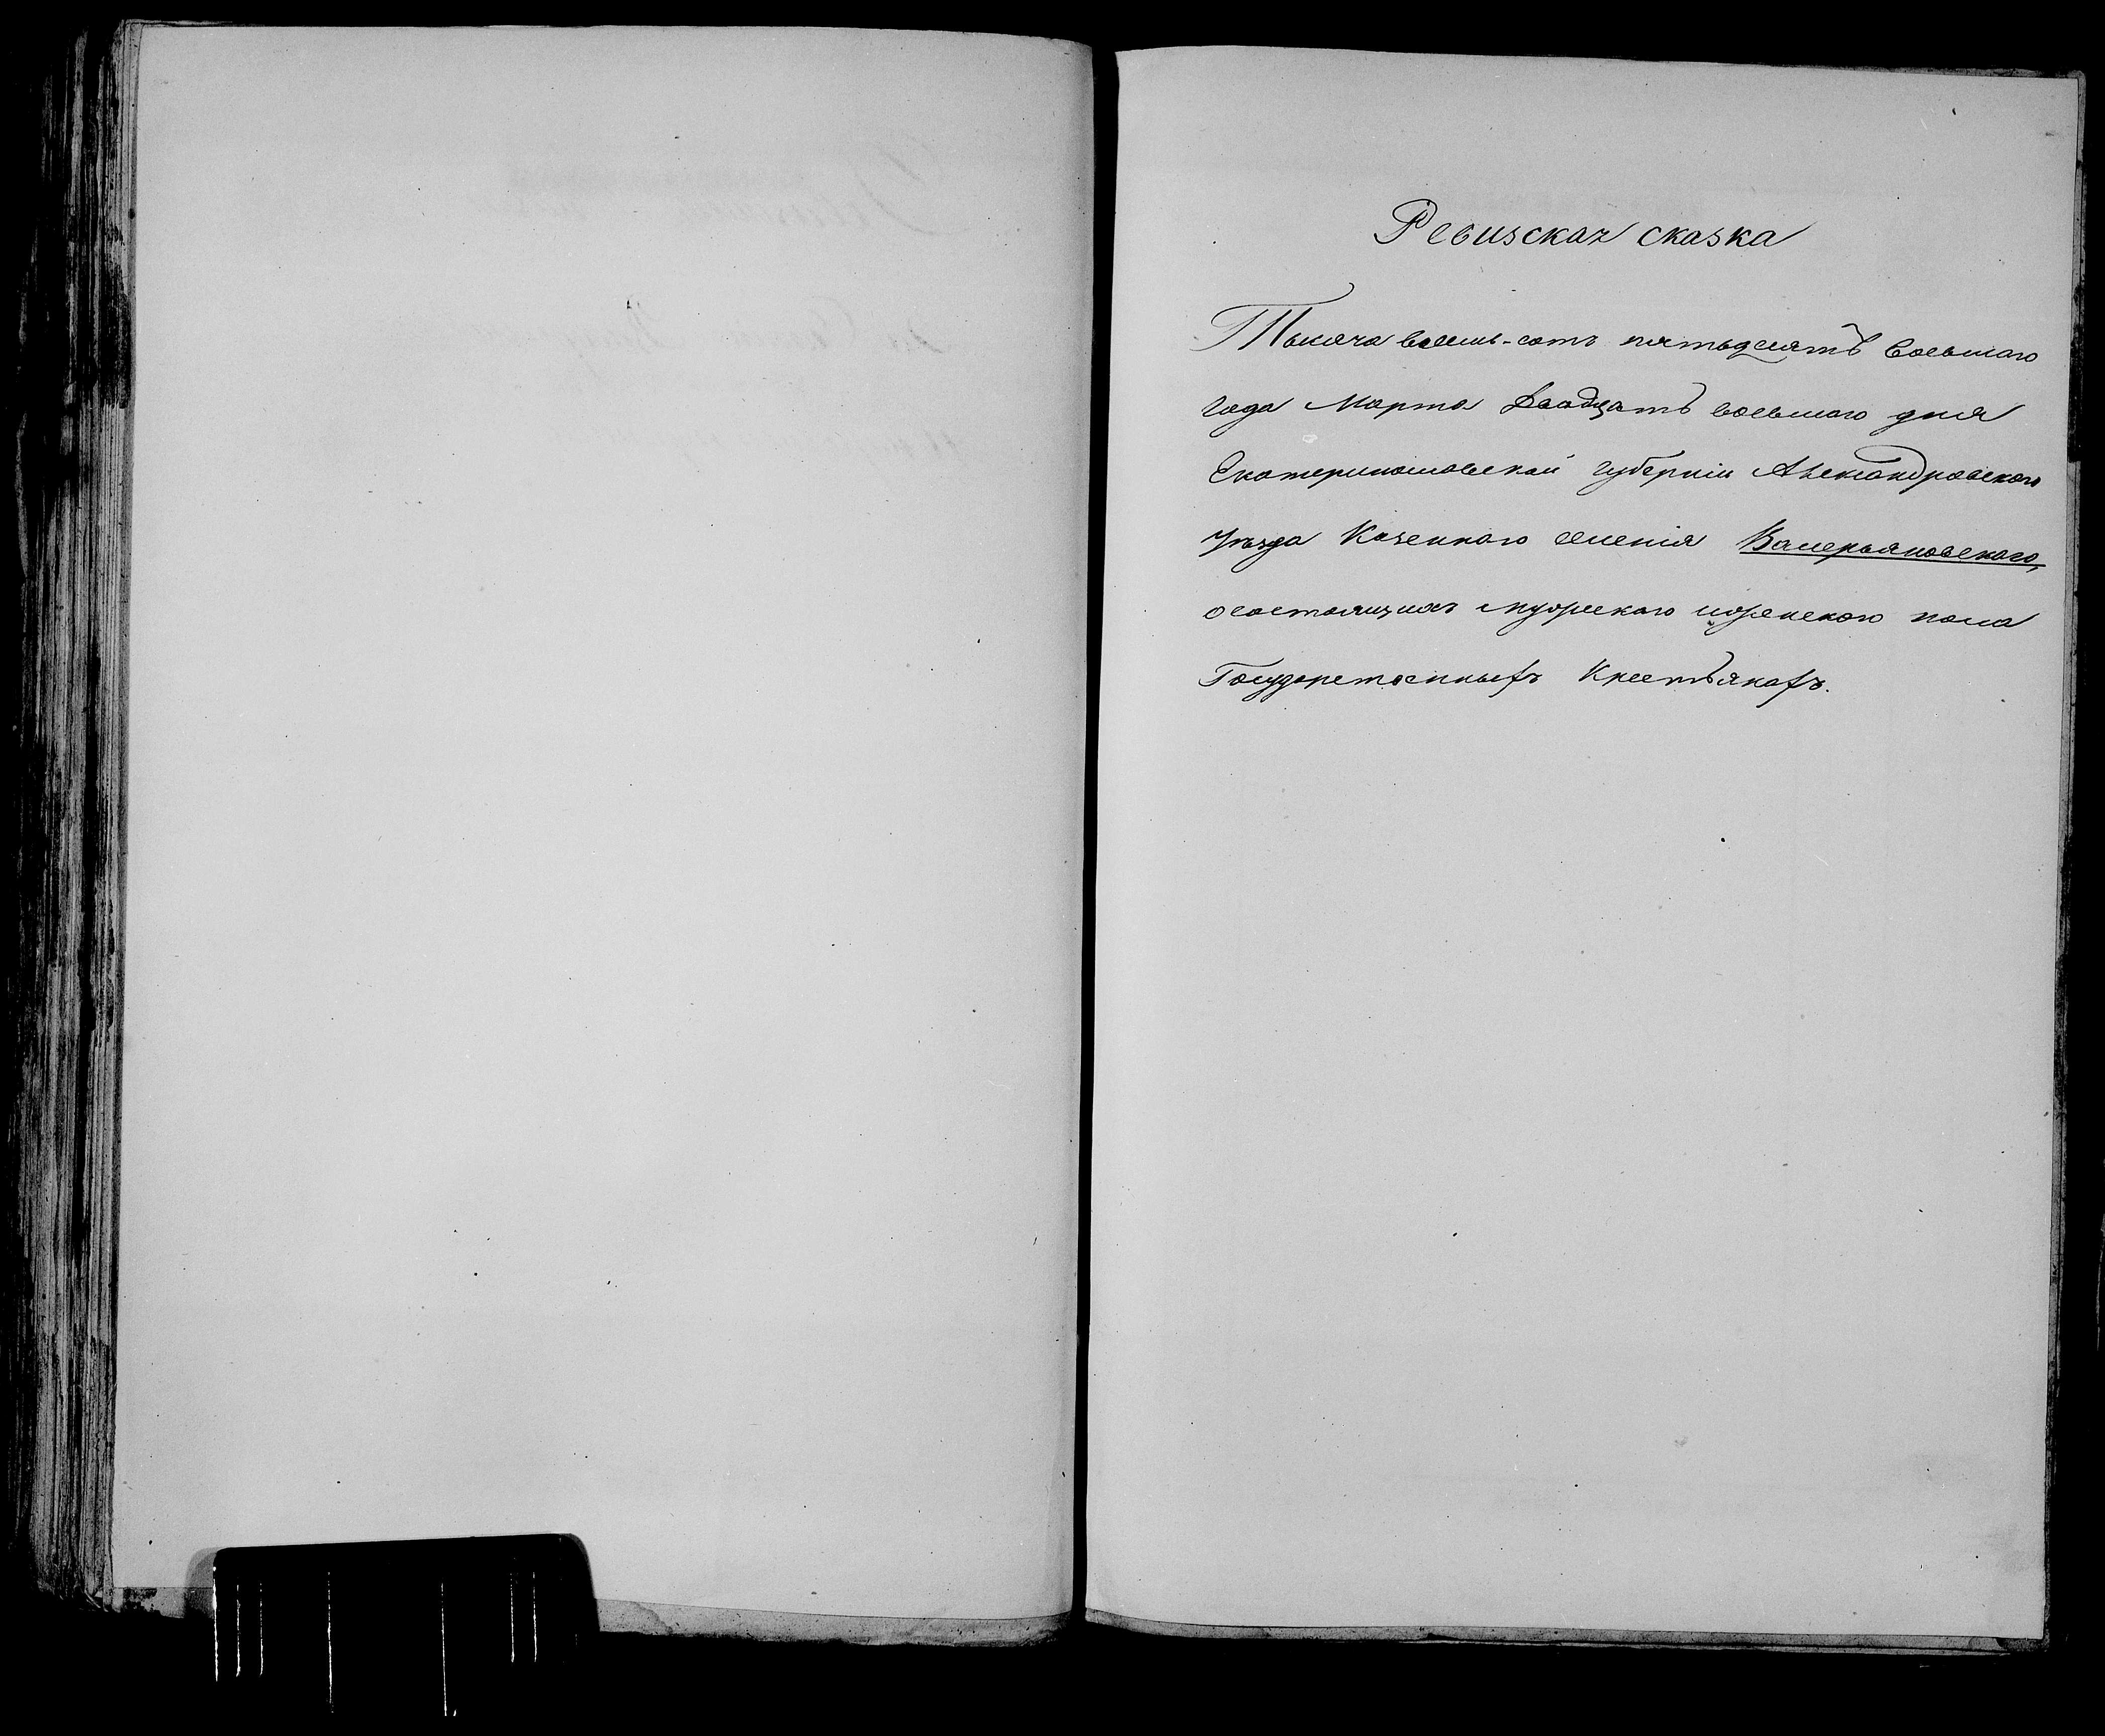 Ревизская сказка
Тысяча восемь-сотъ пятьдесятъ восьмаго
года Марта Двадцать восьмаго дня
Екатеринославской губерніи Александровскаго
уѣзда Казеннаго селенія Валерьяновскаго,
осостоящихъ мужескаго иженскаго пола
Государственныхъ Крестьянахъ.